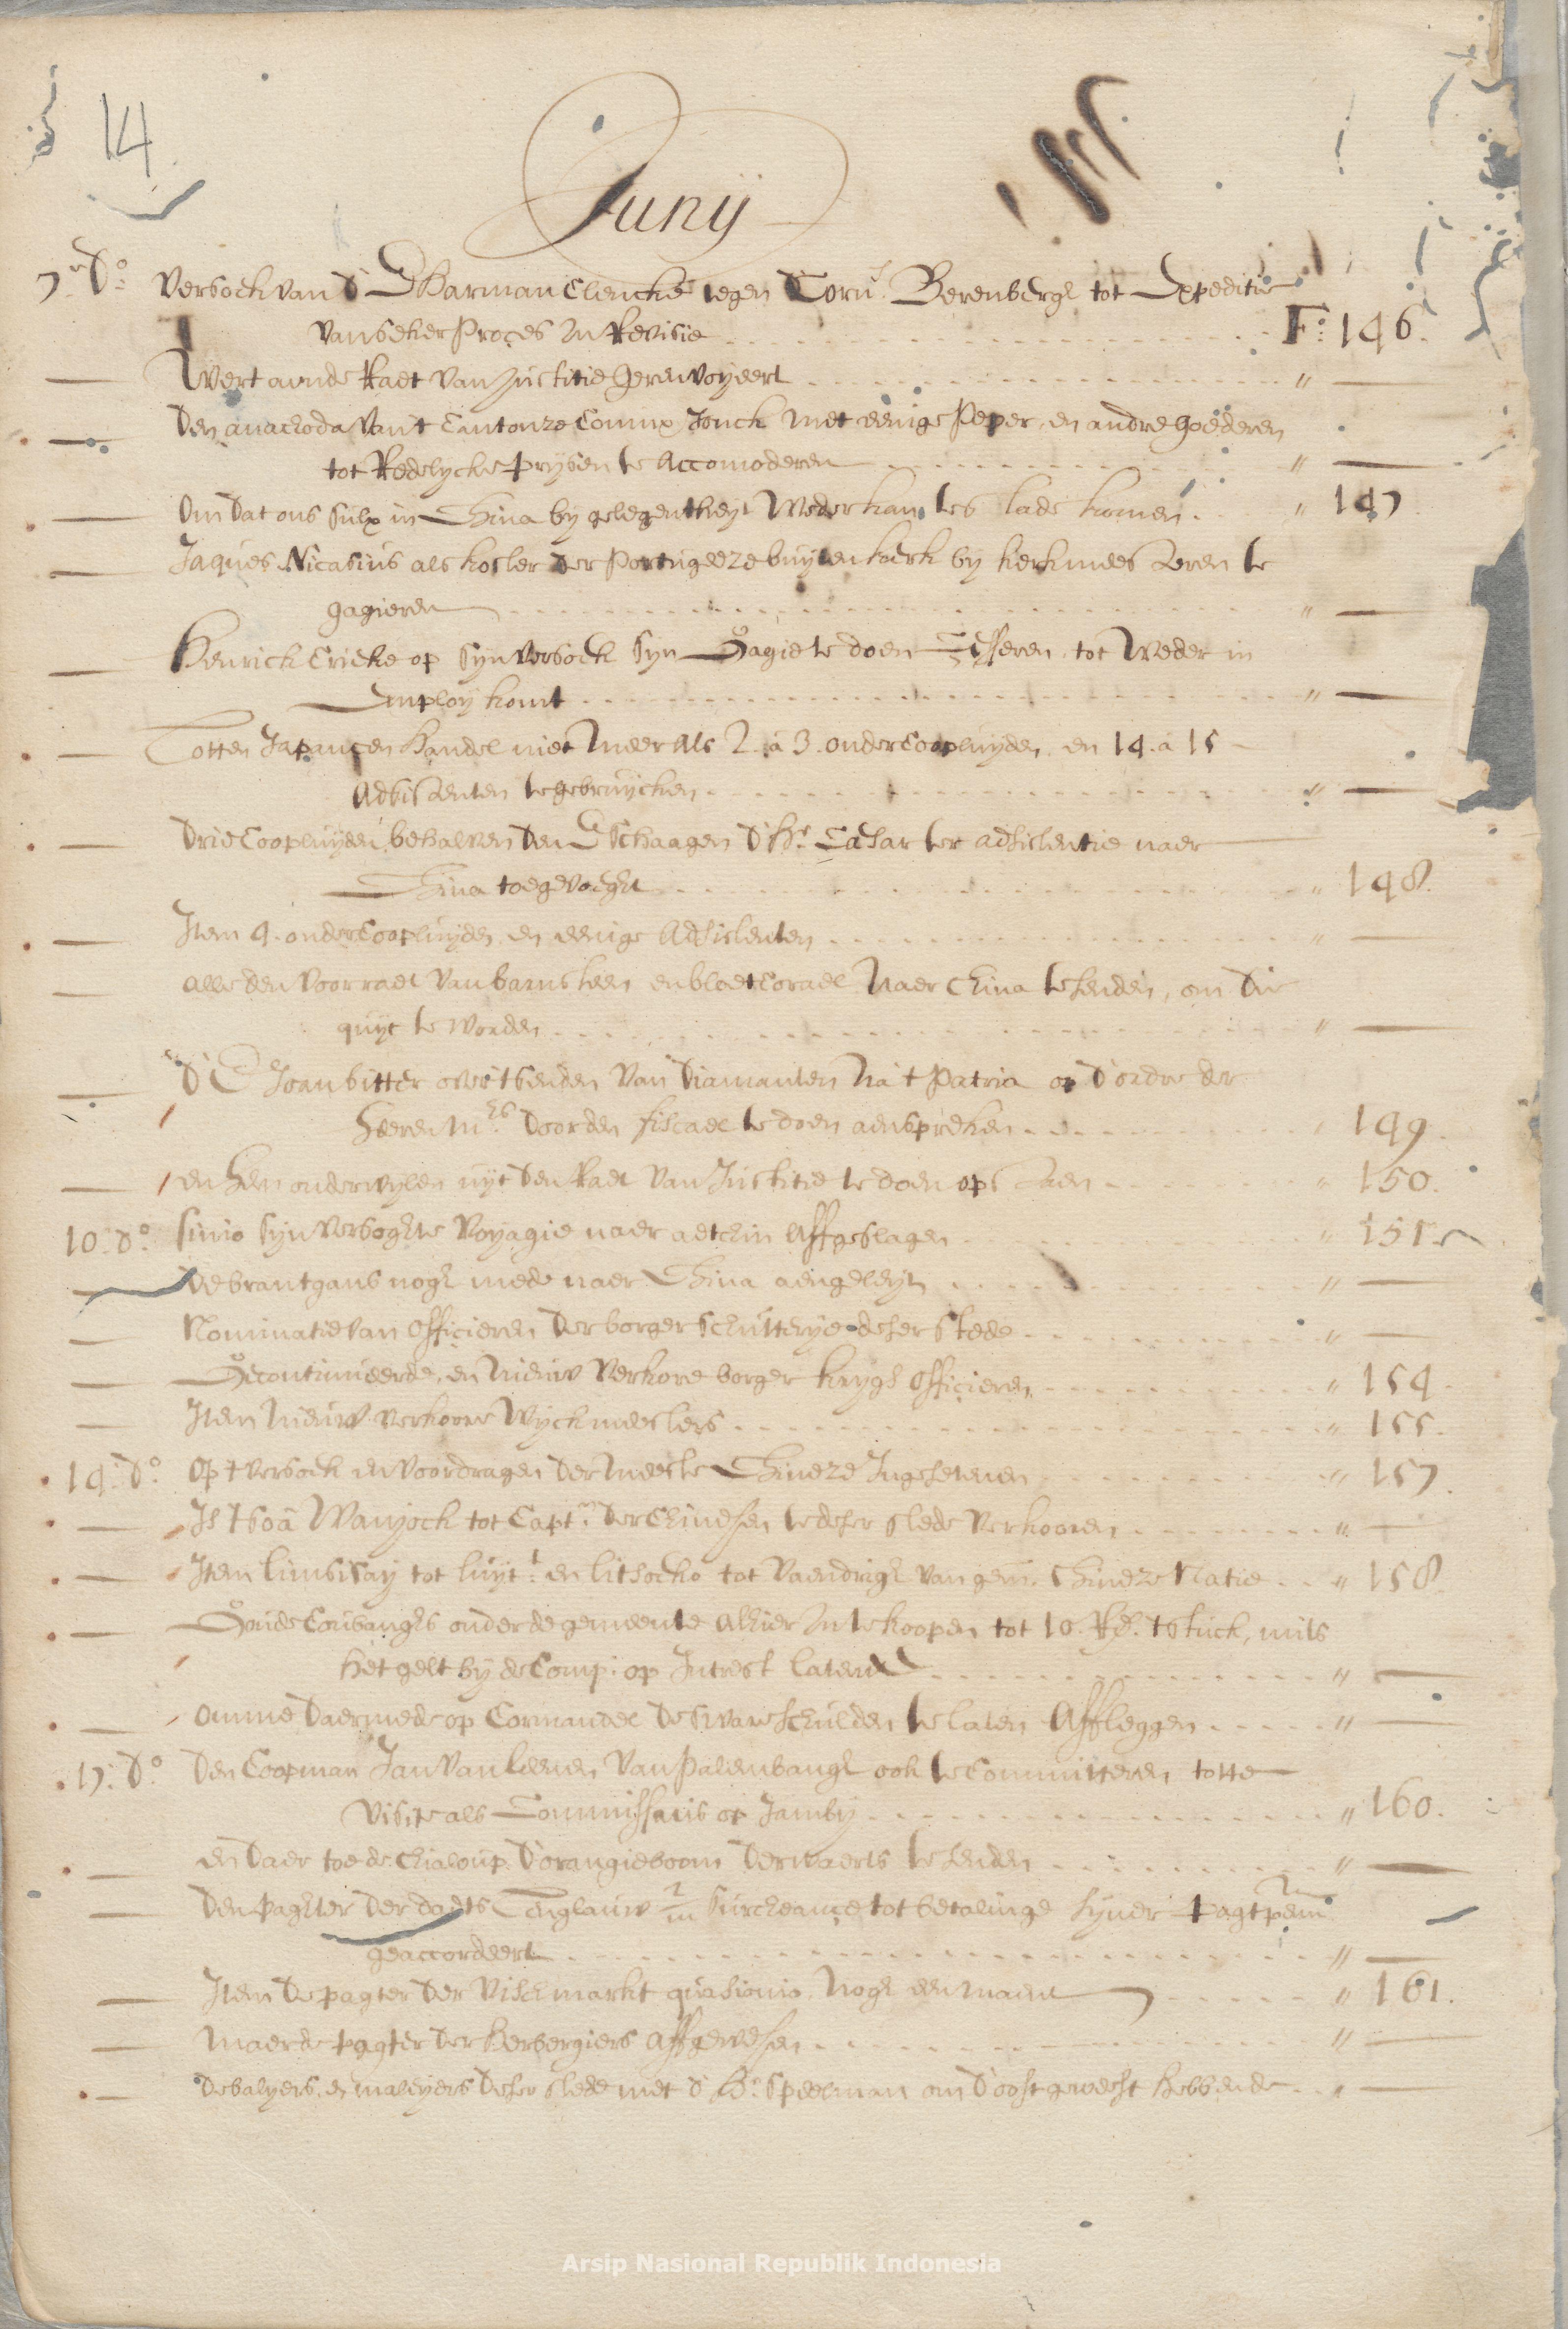 14
Juny
7en do Versoeck van d' E Harman Clencke tegen Corn.s Berenbergh tot Expeditie
van seker Proces in Revisie F.o 146.
— Wert aen de Raet van Justitie gerenvoyeert " —
— Den anachoda van 't Cantonze Jonck met eenige Peper en andre goederen
tot Redelycke prysen te Accomoderen " —
— Om dat ons sulx in China by gelegentheyt Weder kan te komen. " 147
— Jaques Nicasius als koster der Portugeeze buyten kerk by kerkmeesteren te
gagieren " —
— Henrick Ericke op syn versoeck syn Gagie te doen Cesseren, tot Weder in
Employ komt " —
— Totten Japancen Handel niet meer als 2 a 3 onder Coopluyden en 14 a 15
Adsistenten te gebruycken " —
— Drie Coopluyden, behalven den E Schaagen d' H.r Cæsar ter adsistentie naer
China toegevoeght " 148.
— Item 4. onder Coopluyden en eenige Adsistenten " —
— Alle den voorraet van barnsteen en bloetcorael naer China te senden, om die
quyt te worden " —
— d' E Joan bitter over 't senden van Diamanten na 't Patria op d'ordre der
Heeren M.rs door den fiscael te doen aenspreken " 149.
— en hem onderwylen uyt den Raet van Justitie te doen opstaen " 150.
10.' d.o Simio syn versoghte voyagie naer aetchin Affgeslagen " 151.
— de brantgans nogh mede naer China aengeleyt " —
— Nominatie van officieren der borger schutterye deser stede " —
— Gecontinueerde, en nieuw verkore borger krygs officieren " 154.
— Item nieuw verkoore Wyckmeesters " 155.
14.' d.o Op 't versoeck en voordragen der meeste Chineze Ingesetenen " 157.
— Is tsoa Wanjock tot Capt.n der Chinesen te deser stede verkooren " —
— Item limsisay tot luyt.t en litsocko tot vaendrigh van gem. Chineze Natie " 158.
— Goude Coubanghs onder de gemeente alhier in te koopen tot 10. Rd.s 't stuck, mits
het gelt by de Comp.e op Intrest latende " —
— omme daermede op Cormandel de sware schulden te laten Affleggen " —
17.' d.o Den Coopman Jan van Leenen van Palembangh ook te Committeren totte
visite als Commissaris op Jamby " 160.
— en daer toe de chaloup d'orangieboom derwaerts te senden " —
— Den paghter der Tenglauw surcheance tot betalinge syner pagtpenn.
geaccordeert " —
— Item de pagter der vischmarkt quasionio nogh een maent " 161.
— Maer de pagter der Herbergiers affgewesen " —
— De balyers en maleyers deser stede met d' H.r Speelman om d'oost geweest hebbende " —
Arsip Nasional Republik Indonesia